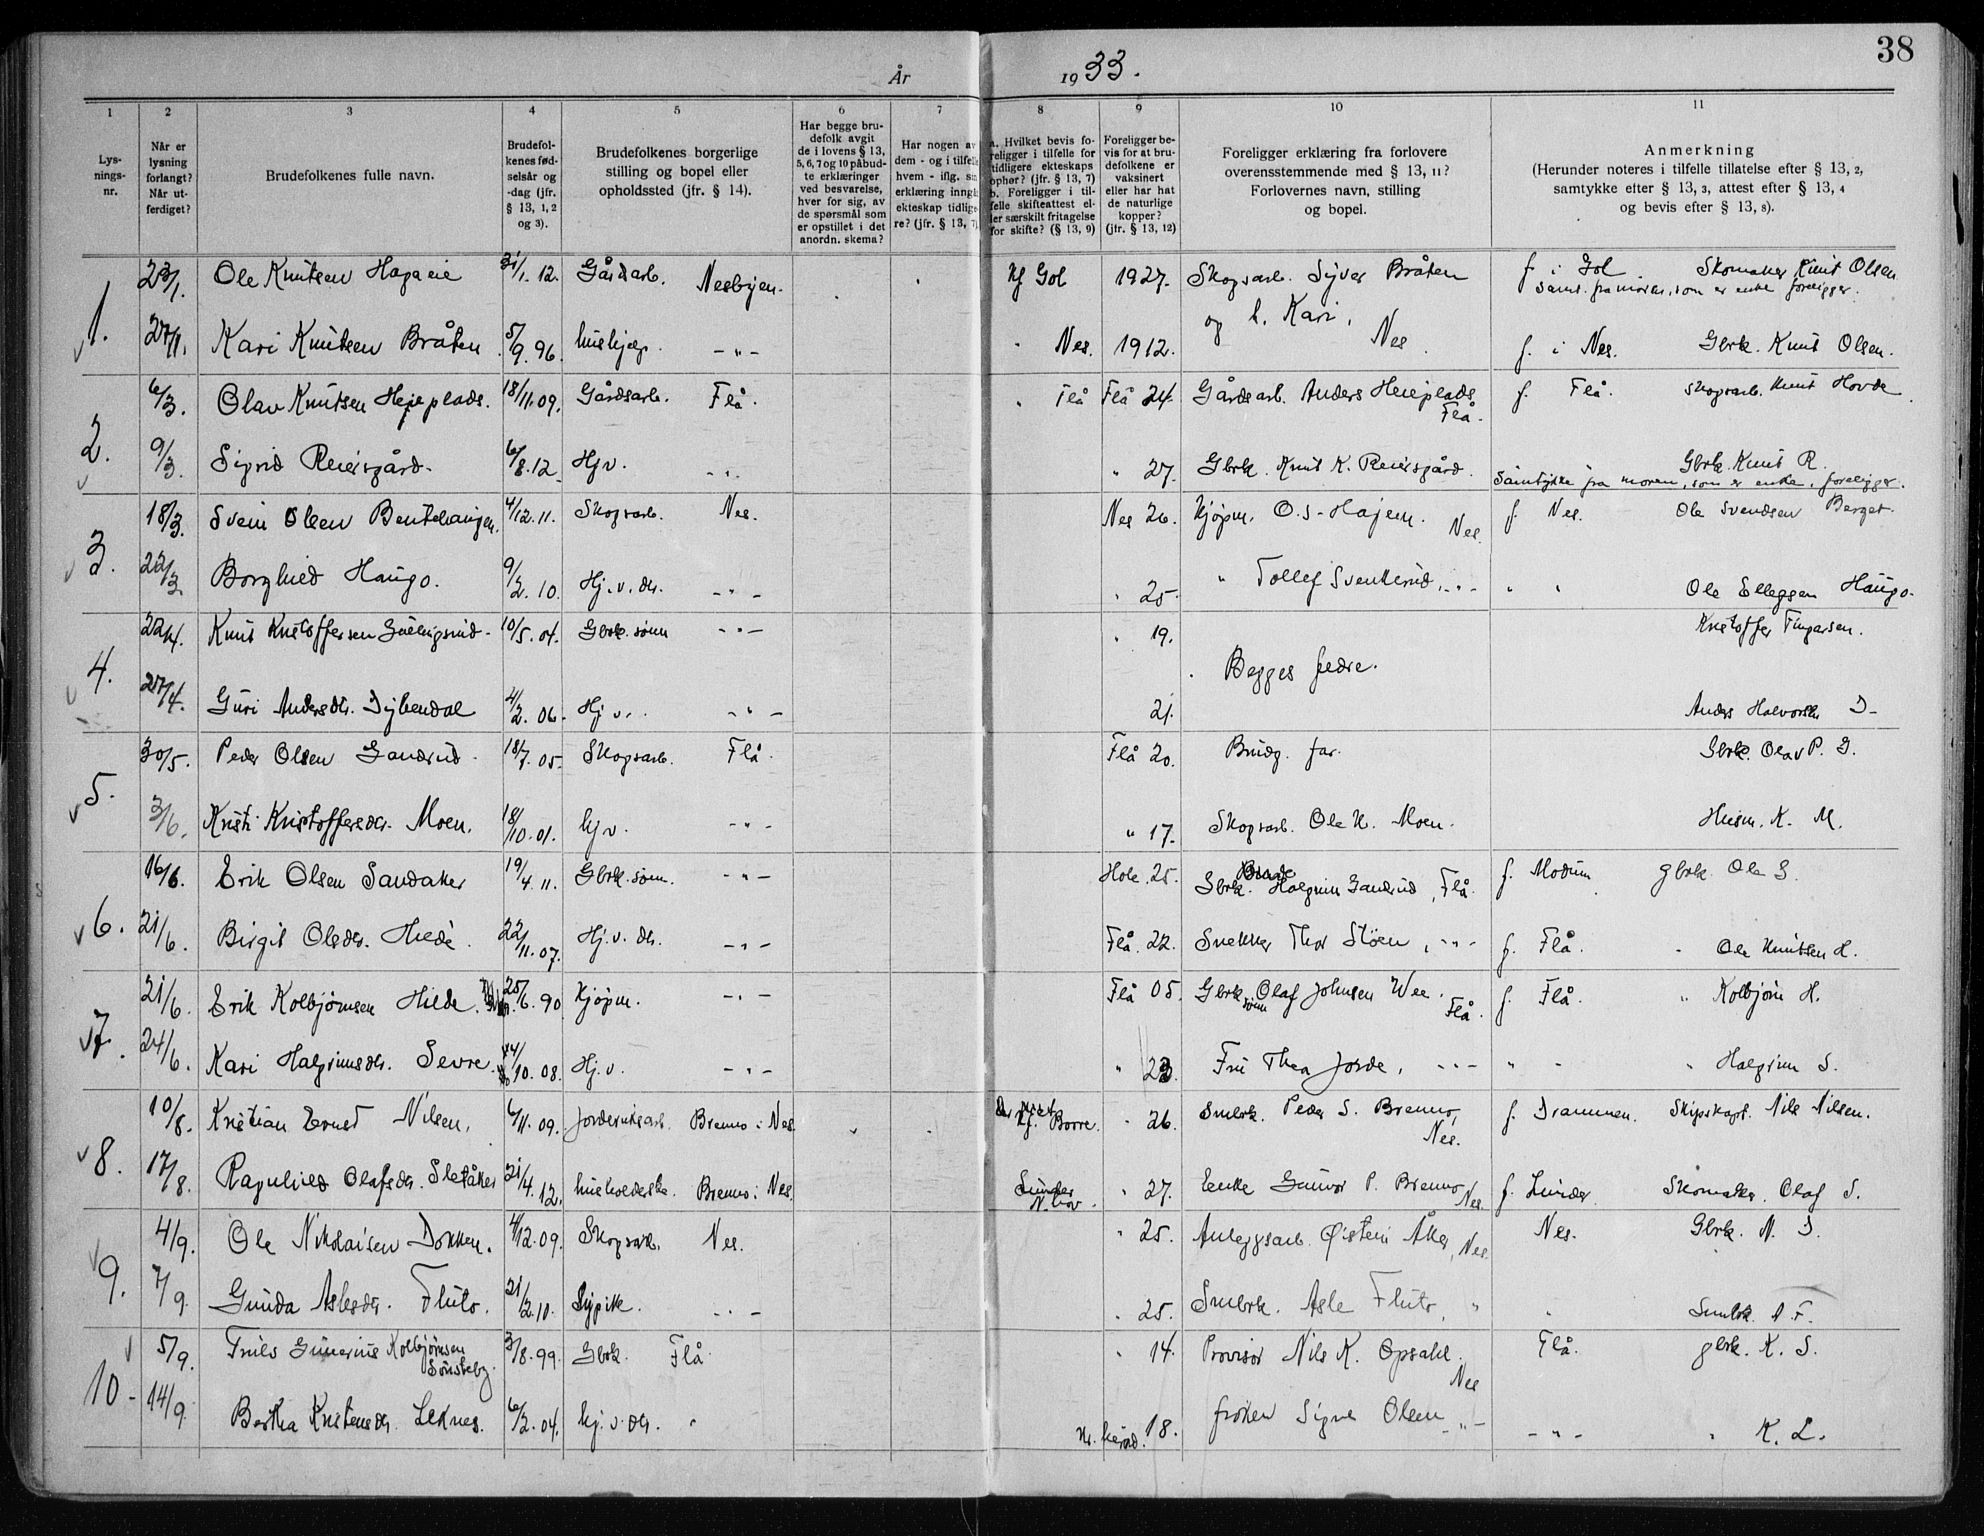 38
År 1933.
1 2 3 4 5 6 7 8 9 10 11
Lys-
nings-
nr.
Når er
lysning
forlangt?
Når ut-
ferdiget?
Brudefolkenes fulle navn.
Brudefol-
kenes fød-
selsår og
-dag (jfr.
§ 13, 1, 2
og 3).
Brudefolkenes borgerlige
stilling og bopel eller
opholdssted (jfr. § 14).
Har begge bru-
defolk avgit
de i lovens § 13,
5, 6, 7 og 10 påbud-
te erklæringer
ved besvarelse,
hver for sig, av
de spørsmål som
er opstillet i det
anordn. skema?
Har nogen av
dem - og i tilfelle
hvem - iflg. sin
erklæring inngåt
ekteskap tidlige-
re? (jfr. § 13, 7)
a. Hvilket bevis fo-
religger i tilfelle for
tidligere ekteskaps
ophør? (jfr. § 13, 7)
b. Foreligger i til-
felle skifteattest el-
ler særskilt fritagelse
for skifte? (§ 13, 9)
Foreligger be-
vis for at bru-
defolkene er
vaksinert
eller har hat
de naturlige
kopper?
(jfr. § 13, 12)
Foreligger erklæring fra forlovere
overensstemmende med § 13, 11?
Forlovernes navn, stilling
og bopel.
Anmerkning
(Herunder noteres i tilfelle tillatelse efter § 13, 2,
samtykke efter § 13, 3, attest efter § 13, 4
og bevis efter § 13, 8).
1. 23/1. Ole Knutsen Hagaeie 31/1. 12. Gårdsarb. Nesbyen. Gol 1927. Skogsarb. Syver Bråten f. i Gol. Skomaker Knut Olsen
og h. Kari, Nes Samt. fra moren, som er enke foreligger.
27/1. Kari Knutsen Bråten 5/9. 96. hushjelp - " - Nes. 1912. f. i Nes. Gbrk. Knut Olsen.
2. 6/3. Olav Knutsen Heieplads. 18/11. 09. Gårdsarb. Flå. Flå Flå 24. Gårdsarb. Anders Heieplads Flå. f. Flå. Skogsarb. Knut Hovde
9/3. Sigrid Reiersgård. 6/8. 12 Hjv. " 27. Gbrk. Knut K. Reiersgård. Gbrk. Knut R.
Samtykke fra moren, som er enke, foreligger.
3. 18/3. Svein Olsen Bentehaugen. 4/12. 11. Skogsarb. Nes. Nes 26. Kjøpm. O. S. Hajem. Nes. f. Nes. Ole Svendsen Berget.
22/3. Borghild Haugo. 9/2. 10. Hj. v. dtr. - " - " 25. " Tollef Svenkerud, - " - " " Ole Ellegsen Haugo.
4. 22/4. Knut Kristoffersen Gullingsrud. 10/5. 04. Gbrk. sønn - " - " 19. Kristoffer Fingarsen.
Begges fedre.
27/4. Guri Andersdtr. Dybendal 4/2. 06. Hj v. - " - 21. Anders Halvorsen D-
5. 30/5. Peder Olsen Gandrud. 18/7. 05. Skogsarb. Flå. Flå 20. Brudg. far. Gbrk. Olav P. G.
3/6. Kristi Kristoffersdtr. Moen. 18/10. 01. hj v. - " - " 17. Skogsarb. Ole K. Moen. Husm. K. M.
6. 16/6. Erik Olsen Sandaker 19/4. 11. Gbrk. sønn. - " - Hole 25. Gbrk. Halgrim Gandrud, Flå. f. Modum gbrk. Ole S.
21/6. Birgit Olsdtr. Hilde. 22/11. 07. Hj. v. dtr. - " - Flå. 22. Snekker Thor Støen, - " - f. Flå. " Ole Knutsen H.
7. 21/6. Erik Kolbjørnsen Hilde. 25/6. 90 Kjøpm. - " - Flå 05. Gbrk. sønn Olaf Johnsen Wee. Flå. f. Flå. " Kolbjørn H.
24/6. Kari Halgrimsdtr. Sevre. /10. 08. Hj. v. - " - " 23. Fru Thea Jorde, - " - " - " Halgrim S.
8. 10/8. Kristian Ernst Nilsen. 6/11. 09. Jordbruksarb. Bromo i Nes. Borre. " 26. Smbrk. Peder S. Bromo, Nes. f. Drammen. Skipskapt. Nils Nilsen.
17/8. Ragnhild Olafsdtr. Sletåker 21/4. 12. husholderske. Bromo i Nes. " 27. Enke Gunvor P. Bromo, Nes. f. Lunder Skomaker. Olaf S.
9. 4/9. Ole Nikolaisen Dokken. 4/12. 09. Skogsarb. Nes. " 25. Anleggsarb. Øistein Åker, Nes. Nes. Gbrk. N. D.
7/9. Gunda Aslesdtr. Fluto. 21/2. 10. Sypike. - " - " 25. Smbrk. Asle Fluto, " Smbrk. A F.
10- 5/9. Truls Gunerius Kolbjørnsen Sønsteby. 3/8. 99. Gbrk. Flå " 14. Provisor Nils K. Opsahl. Nes Flå. gbrk. K. S.
14/9. Bertha Kristensdtr. Leknes. 6/2. 04. hj. v. dtr. " 18. frøken Signe Olsen - " - - " - " K. L.